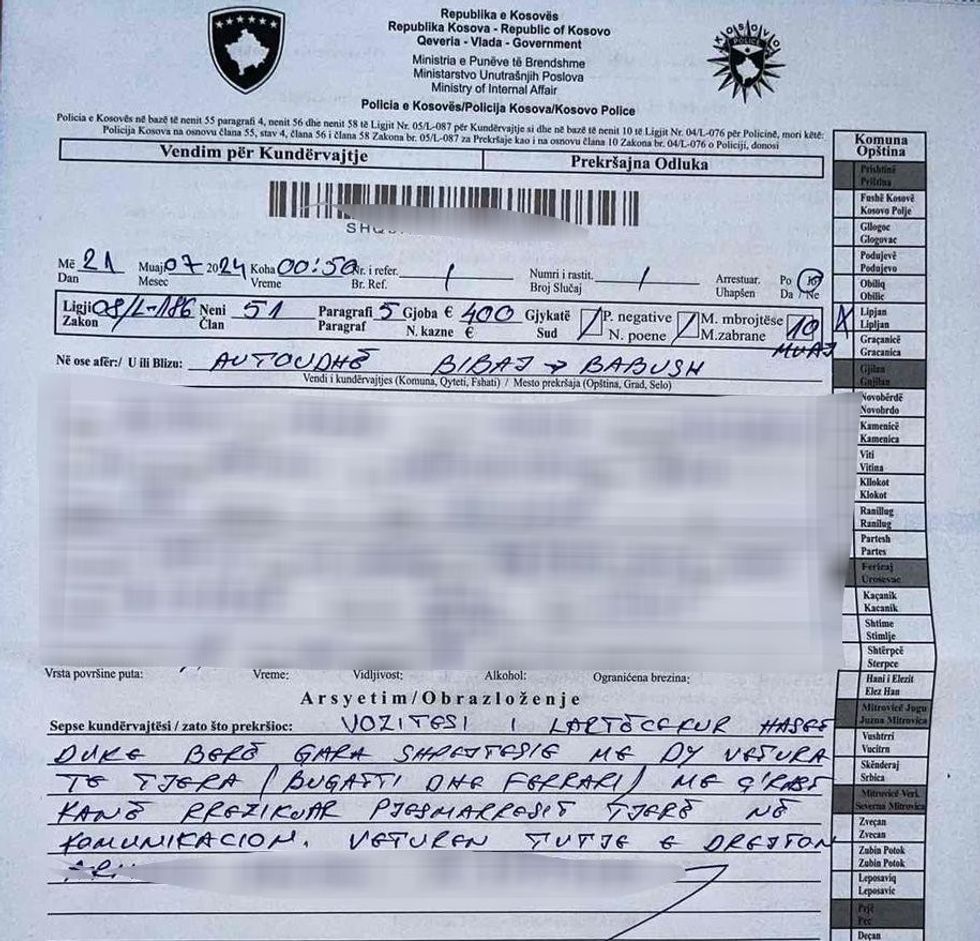 Republika e Kosovës
Republika Kosova - Republic of Kosovo
Qeveria - Vlada - Government
Ministria e Punëve të Brendshme
Ministarstvo Unutrašnjih Poslova
Ministry of Internal Affair
Policia e Kosovës/Policija Kosova/Kosovo Police
KOSOVO
POLICE
Policia e Kosovës në bazë të nenit 55 paragrafi 4, nenit 56 dhe nenit 58 të Ligjit Nr. 05/L-087 për Kundërvajtje si dhe në bazë të nenit 10 të Ligjit Nr. 04/L-076 për Policinë, mori këtë:
Policija Kosova na osnovu člana 55, stav 4, člana 56 i člana 58 Zakona br. 05/L-087 za Prekršaje kao i na osnovu člana 10 Zakona br. 04/L-076 o Policiji, donosi
Vendim për Kundërvajtje Prekršajna Odluka
Më 21 Muaj 07 2024 Koha 00:50 Nr. i refer. / Numri i rastit. / Arrestuar. Po Jo
Dan Mesec Vreme Br. Ref. Broj Slučaj Uhapšen Da / Ne
Ligji 08/L-186 Neni 51 Paragrafi 5 Gjoba € 400 Gjykatë / P. negative / M. mbrojtëse 10
Zakon Član Paragraf N. kazne € Sud N. poene M.zabrane MUAJ
Në ose afër:/ U ili Blizu: AUTOUDHË BIBAJ → BABUSH
Vendi i kundërvajtjes (Komuna, Qyteti, Fshati) / Mesto prekršaja (Opština, Grad, Selo)
Vrsta površine puta: Vreme: Vidljivost: Alkohol: Ograničena brezina:
Arsyetim/Obrazloženje
Sepse kundërvajtësi / zato što prekršioc: VOZITESI I LARTËCEKUR
DUKE BERË GARA SHPEJTESIE ME DY VETURA
TE TJERA (BUGATTI DHE FERRARI) ME Ç'RAST
KANË RREZIKUAR PJESMARRESIT TJERË NË
KOMUNIKACION. VETUREN TUTJE E DREJTON
Komuna
Opština
Prishtinë
Priština
Fushë Kosovë
Kosovo Polje
Gllogoc
Glogovac
Podujevë
Podujevo
Obiliq
Obilic
X Lipjan
Lipljan
Graçanicë
Gracanica
Gjilan
Gnjilan
Novobërdë
Novobrdo
Kamenicë
Kamenica
Viti
Vitina
Kllokot
Klokot
Ranillug
Ranilug
Partesh
Partes
Ferizaj
Urosevac
Kaçanik
Kacanik
Shtime
Stimlje
Shtërpcë
Sterpce
Hani i Elezit
Elez Han
Mitrovicë Jugu
Juzna Mitrovica
Vushtrri
Vucitrn
Skënderaj
Srbica
Mitrovicë Veri.
Severna Mitrovica
Zveçan
Zvecan
Zubin Potok
Zubin Potok
Leposaviq
Leposavic
Pejë
Pec
Deçan